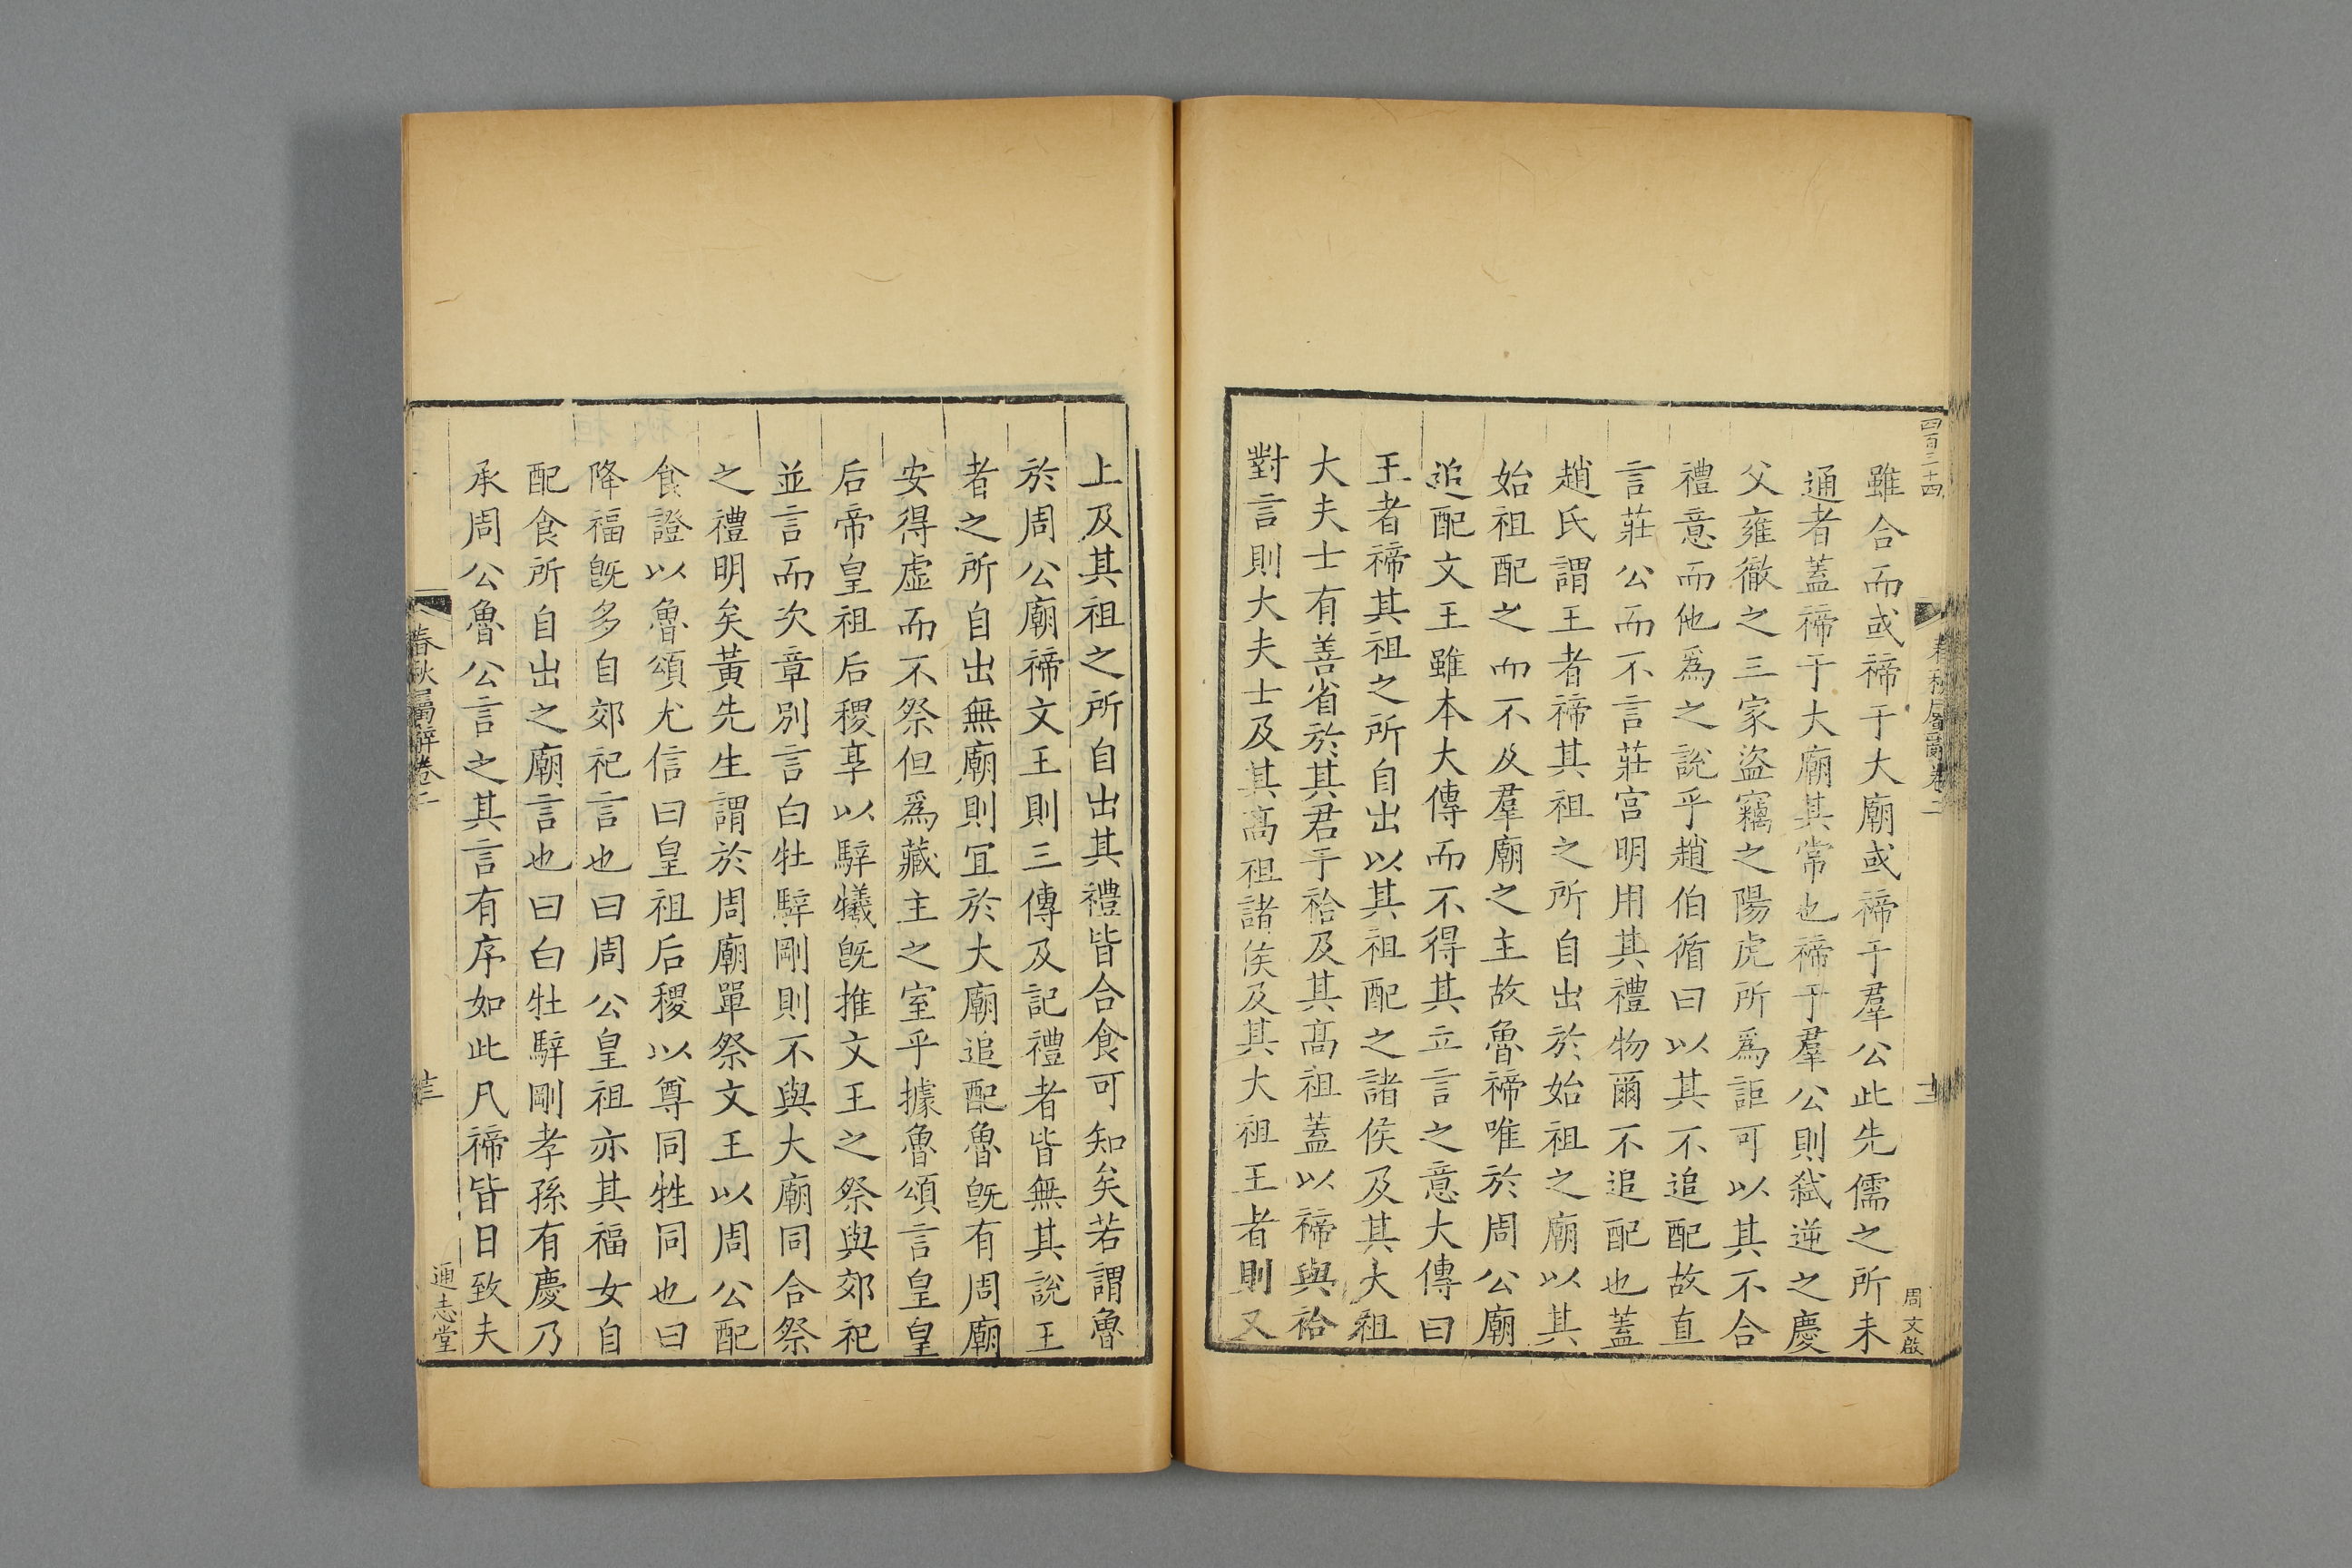 四百三十四
春秋屬辭卷二
周文啟
雖合而或禘于大廟或禘于羣公此先儒之所未
通者蓋禘于大廟其常也禘于羣公則弑逆之慶
父雍徹之三家盜竊之陽虎所爲詎可以其不合
禮意而他爲之說乎趙伯循曰以其不追配故直
言莊公而不言莊宫明用其禮物爾不追配也蓋
趙氏謂王者禘其祖之所自出於始祖之廟以其
始祖配之而不及羣廟之主故魯禘唯於周公廟
追配文王雖本大傳而不得其立言之意大傳曰
王者禘其祖之所自出以其祖配之諸侯及其大祖
大夫士有善省於其君干祫及其高祖蓋以禘與祫
對言則大夫士及其高祖諸侯及其大祖王者則又
上及其祖之所自出其禮皆合食可知矣若謂魯
於周公廟禘文王則三傳及記禮者皆無其說王
者之所自出無廟則宜於大廟追配魯旣有周廟
安得虛而不祭但爲藏主之室乎據魯頌言皇皇
后帝皇祖后稷享以騂犧旣推文王之祭與郊祀
並言而次章別言白牡騂剛則不與大廟同合祭
之禮明矣黃先生謂於周廟單祭文王以周公配
食證以魯頌尤信曰皇祖后稷以尊同牲同也曰
降福旣多自郊祀言也曰周公皇祖亦其福女自
配食所自出之廟言也曰白牡騂剛孝孫有慶乃
承周公魯公言之其言有序如此凡禘皆日致夫
春秋屬辭卷二
通志堂